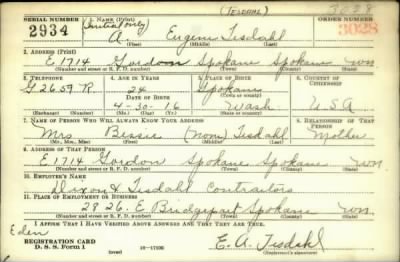 (TESDAHL)
3028
SERIAL NUMBER
2934
1. NAME (Print)
(Initial only)
ORDER NUMBER
3028
A. Eugene Tesdahl
(First) (Middle) (Last)
2. ADDRESS (Print)
E 1714 Gordon Spokane Spokane Wn
(Number and street or R. F. D. number) (Town) (County) (State)
3. TELEPHONE
4. AGE IN YEARS
5. PLACE OF BIRTH
6. COUNTRY OF CITIZENSHIP
24
Spokane
(Town or county)
DATE OF BIRTH
4-30-16
Wash
U.S.A
(Exchange) (Number)
(Mo.) (Day) (Yr.)
(State or country)
7. NAME OF PERSON WHO WILL ALWAYS KNOW YOUR ADDRESS
8. RELATIONSHIP OF THAT PERSON
Mrs Bessie (Non) Tesdahl Mother
(Mr., Mrs., Miss) (First) (Middle) (Last)
9. ADDRESS OF THAT PERSON
E 1714 Gordon Spokane Spokane Wn
(Number and street or R. F. D. number) (Town) (County) (State)
10. EMPLOYER'S NAME
Dixon & Tesdahl Contractors
11. PLACE OF EMPLOYMENT OR BUSINESS
2826 E Bridgeport Spokane Wn.
(Number and street or R. F. D. number) (Town) (County) (State)
I AFFIRM THAT I HAVE VERIFIED ABOVE ANSWERS AND THAT THEY ARE TRUE.
Eden
REGISTRATION CARD
D. S. S. Form 1
(over)
E. A. Tesdahl
(Registrant's signature)